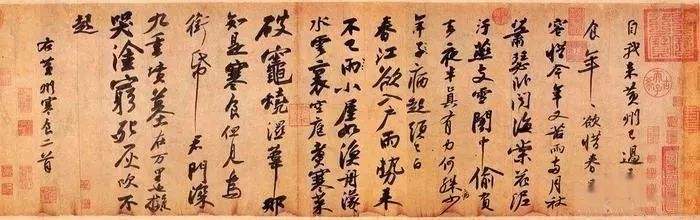 自我來黃州已過三
食年〻欲惜春〻
容惜今年又苦雨兩月秋
蕭瑟卧聞海棠花泥
汙燕支雪闇中偷負
去夜半真有力何殊少
年子病起頭已白
春江欲入戶雨勢來
不已雨小屋如漁舟濛〻
水雲裏空庖煮寒菜
破竈燒濕葦那
知是寒食但見烏
銜帋君門深
九重墳墓在万里也擬
哭塗窮死灰吹不
起
右黃州寒食二首